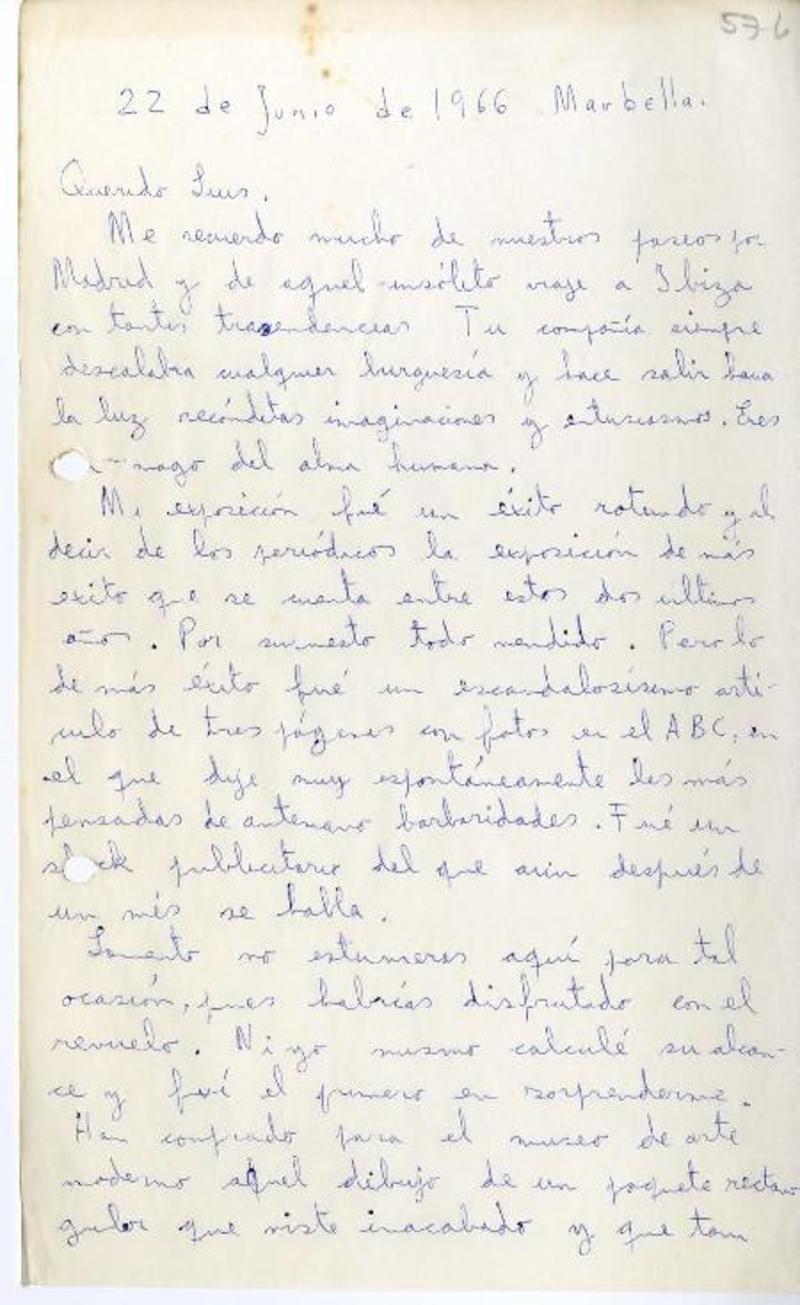 57-6
22 de Junio de 1966 Marbella.
Querido Luis.
Me recuerdo mucho de nuestros paseos por
Madrid y de aquel insólito viaje a Ibiza
con tantas trasendencias Tu compañía siempre
descalabra cualquier burguesía y hace salir hacia
la luz recónditas imaginaciones y entusiasmos. Eres
mago del alma humana.
Mi exposición fué un éxito rotundo y al
decir de los periódicos la exposición de más
exito que se cuenta entre estos dos ultimos
años. Por supuesto todo vendido. Pero lo
de más éxito fué un escandalosísimo artí-
culo de tres páginas con fotos en el ABC, en
el que dije muy espontáneamente las más
pensadas de antemano barbaridades. Fué un
shock publicitario del que aún después de
un més se habla.
Lamento no estuvieras aquí para tal
ocasión, pues habrías disfrutado con el
revuelo. Ni yo mismo calculé su alcan-
ce y fuí el primero en sorprenderme.
Han comprado para el museo de arte
moderno aquel dibujo de un paquete rectan
gular que viste inacabado y que tam